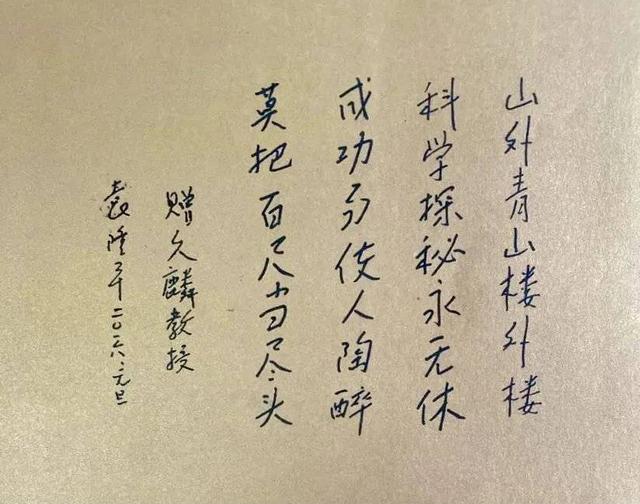 山外青山楼外楼
科学探秘永无休
成功易使人陶醉
莫把百尺当尽头
赠久麟教授
袁隆平二〇一六、元旦